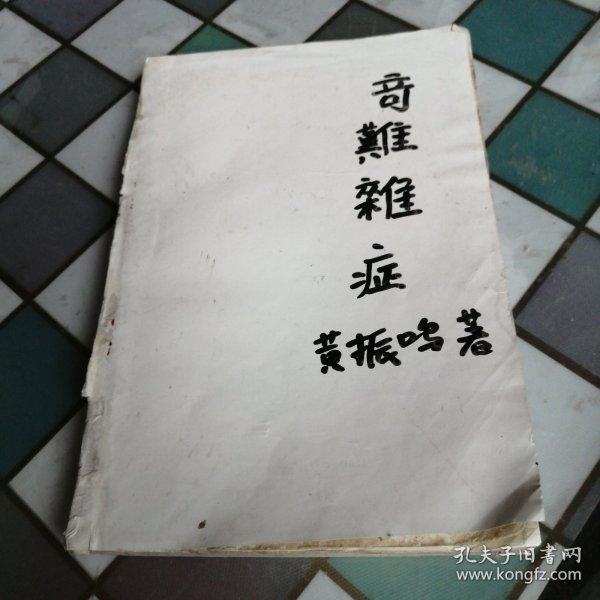 奇難雜症
黃振鸣著
孔夫子旧書网
www.kongfz.com